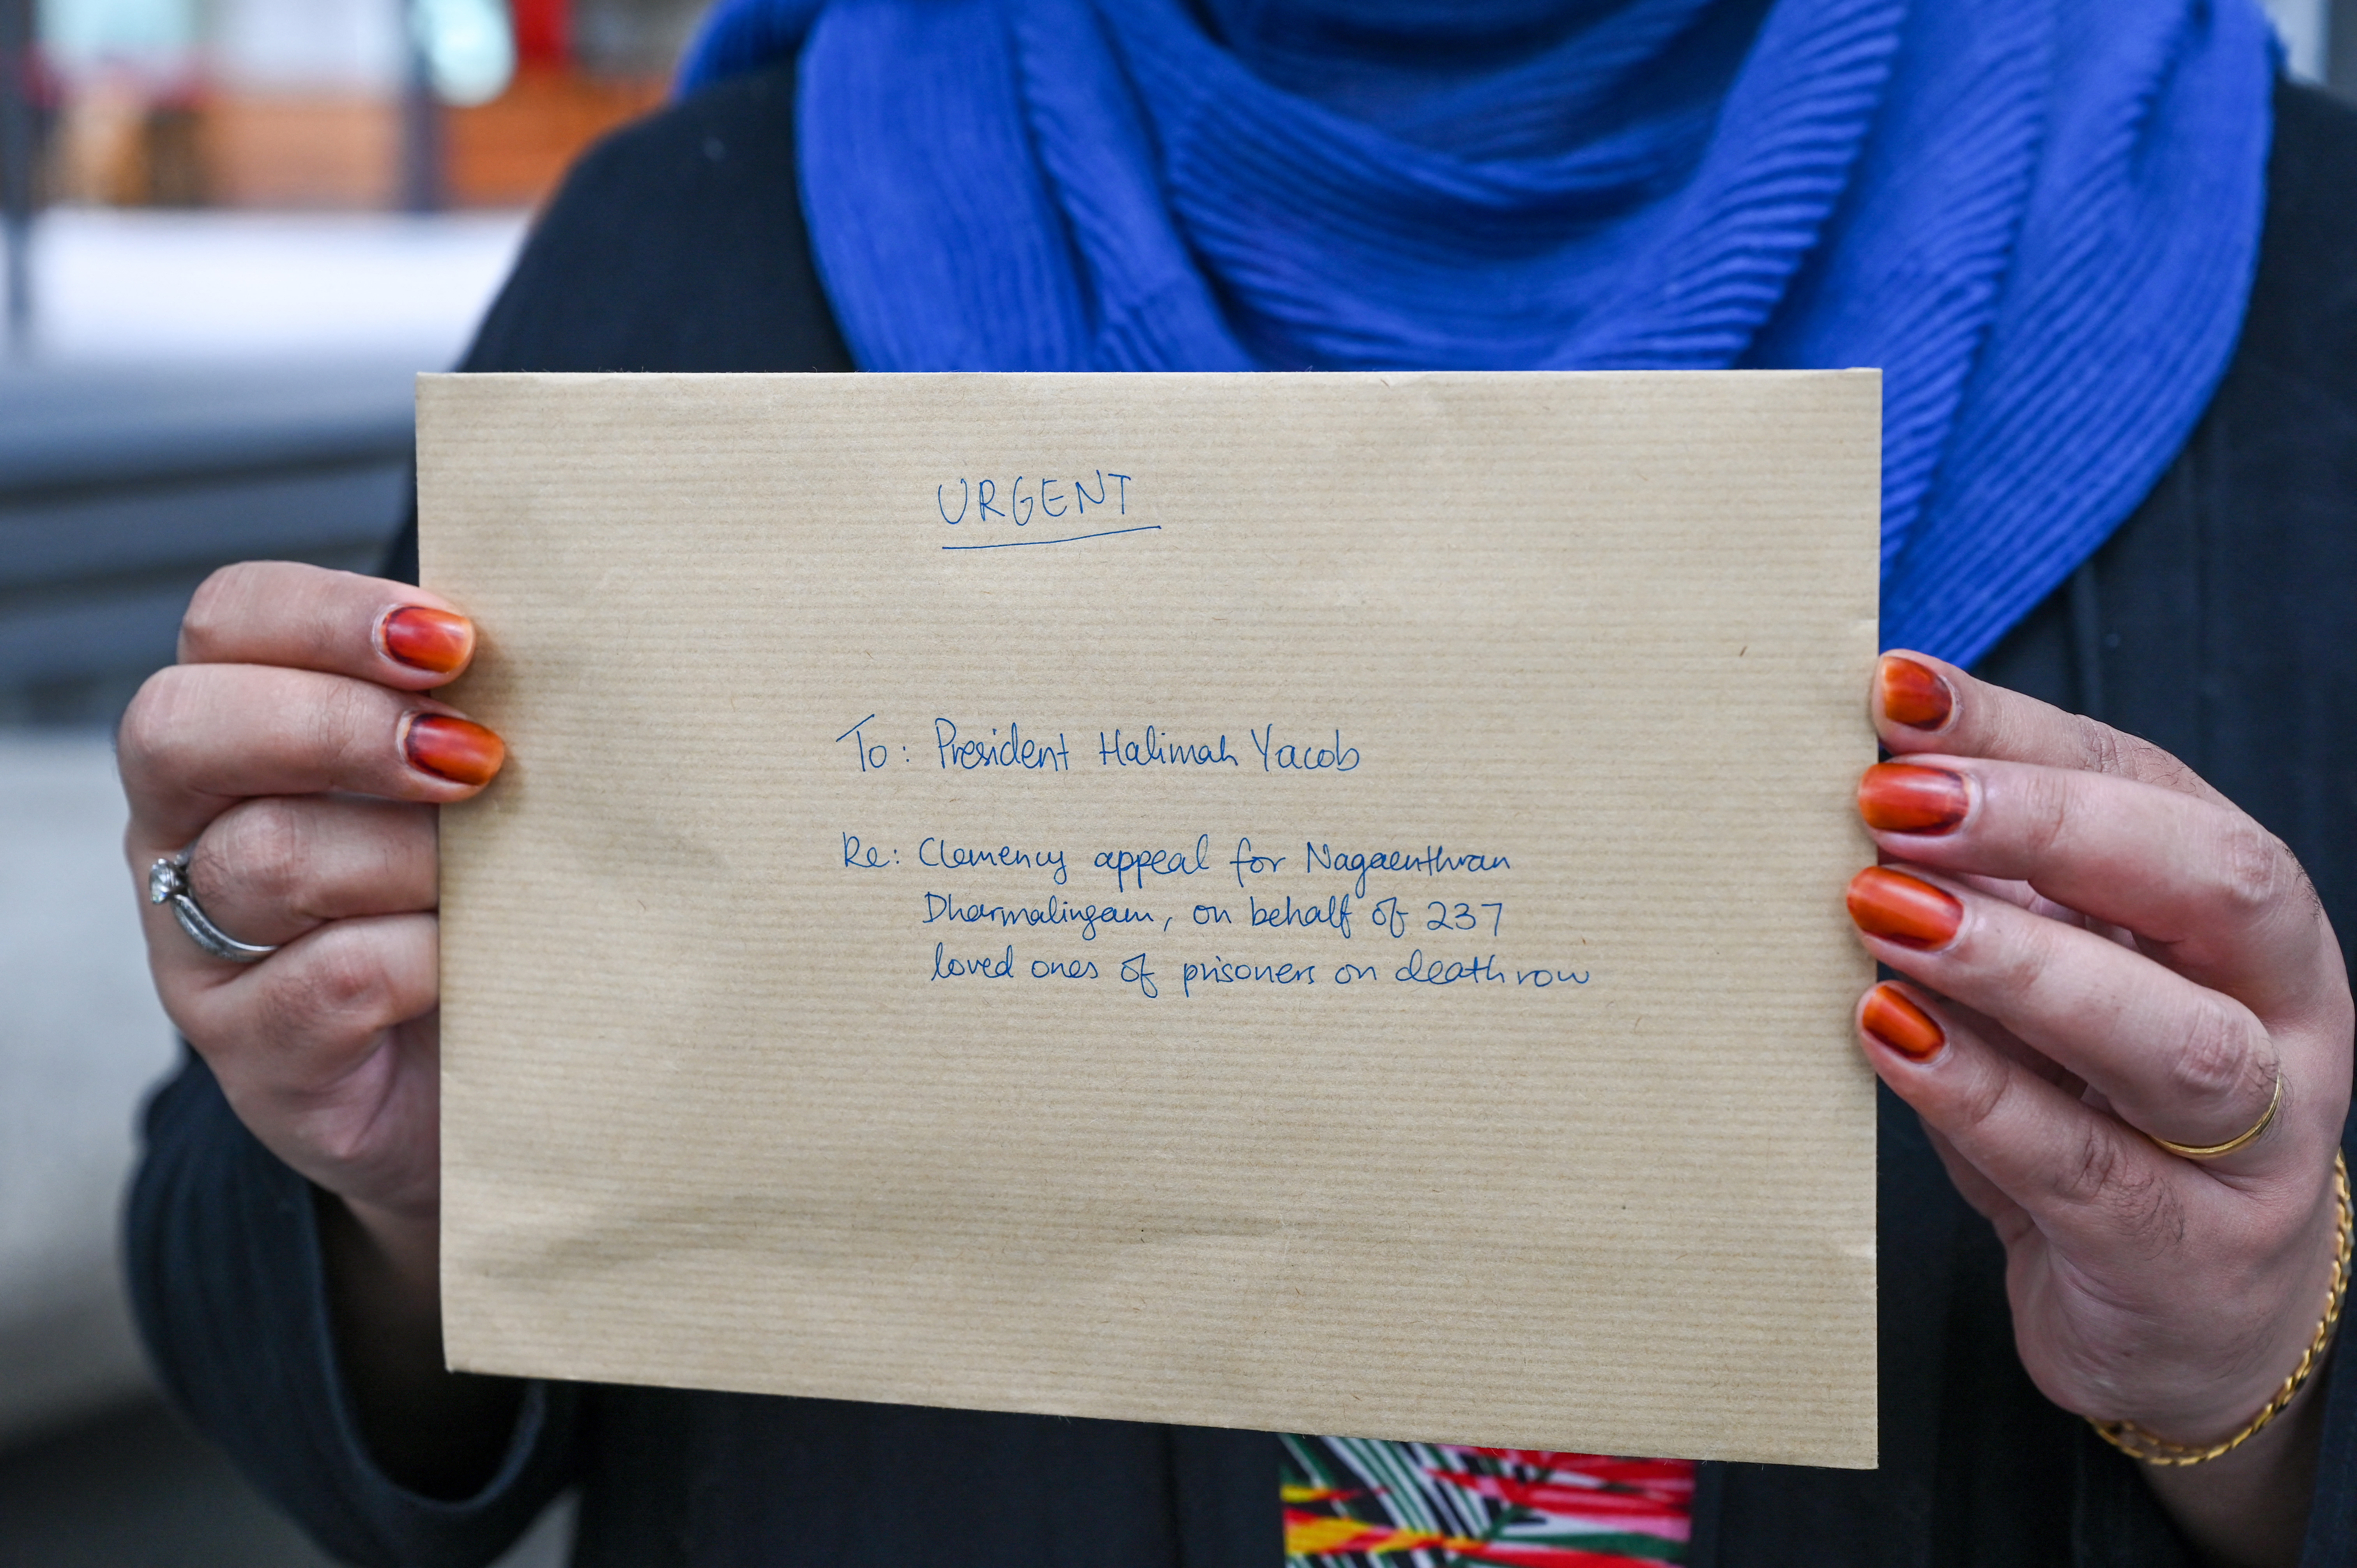 URGENT
To: President Halimah Yacob
Re: Clemency appeal for Nagaenthran
Dharmalingam, on behalf of 237
loved ones of prisoners on death row